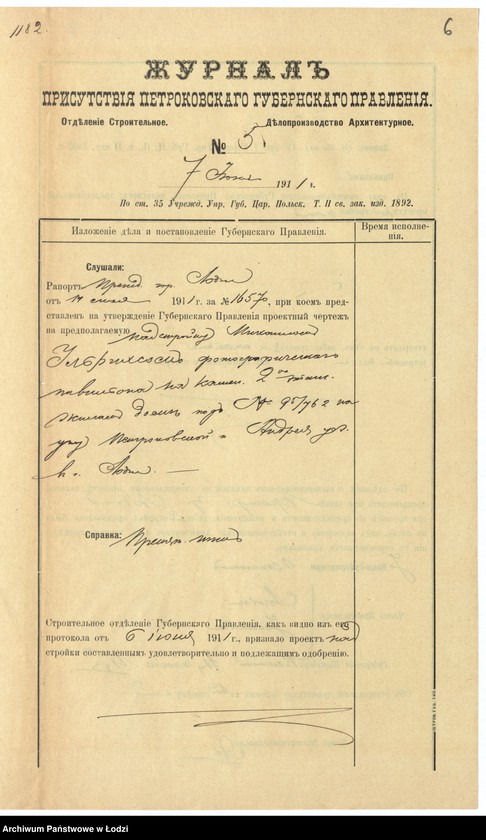 1182.
6
ЖУРНАЛЪ
ПРИСУТСТВІЯ ПЕТРОКОВСКАГО ГУБЕРНСКАГО ПРАВЛЕНІЯ.
Отдѣленіе Строительное.
Дѣлопроизводство Архитектурное.
№ 5
7 Іюня 1911 г.
По ст. 35 Учрежд. Упр. Губ. Цар. Польск. Т. II св. зак. изд. 1892.
Изложеніе дѣла и постановленіе Губернскаго Правленія.
Время исполне-
нія.
Слушали:
Рапортъ Презид. гор. Лодзи
отъ 1911 г. за № 1657, при коемъ пред-
ставленъ на утвержденіе Губернскаго Правленія проектный чертежъ
на предполагаемую надстройку
фотографическаго
павильона на 2
домѣ подъ № 95/762 на
углу Петроковской и Андрея ул.
въ г. Лодзи. —
Справка:
Строительное отдѣленіе Губернскаго Правленія, какъ видно изъ его
протокола отъ 6 іюня 1911 г., признало проектъ над
стройки составленнымъ удовлетворительно и подлежащимъ одобренію.
Archiwum Państwowe w Łodzi